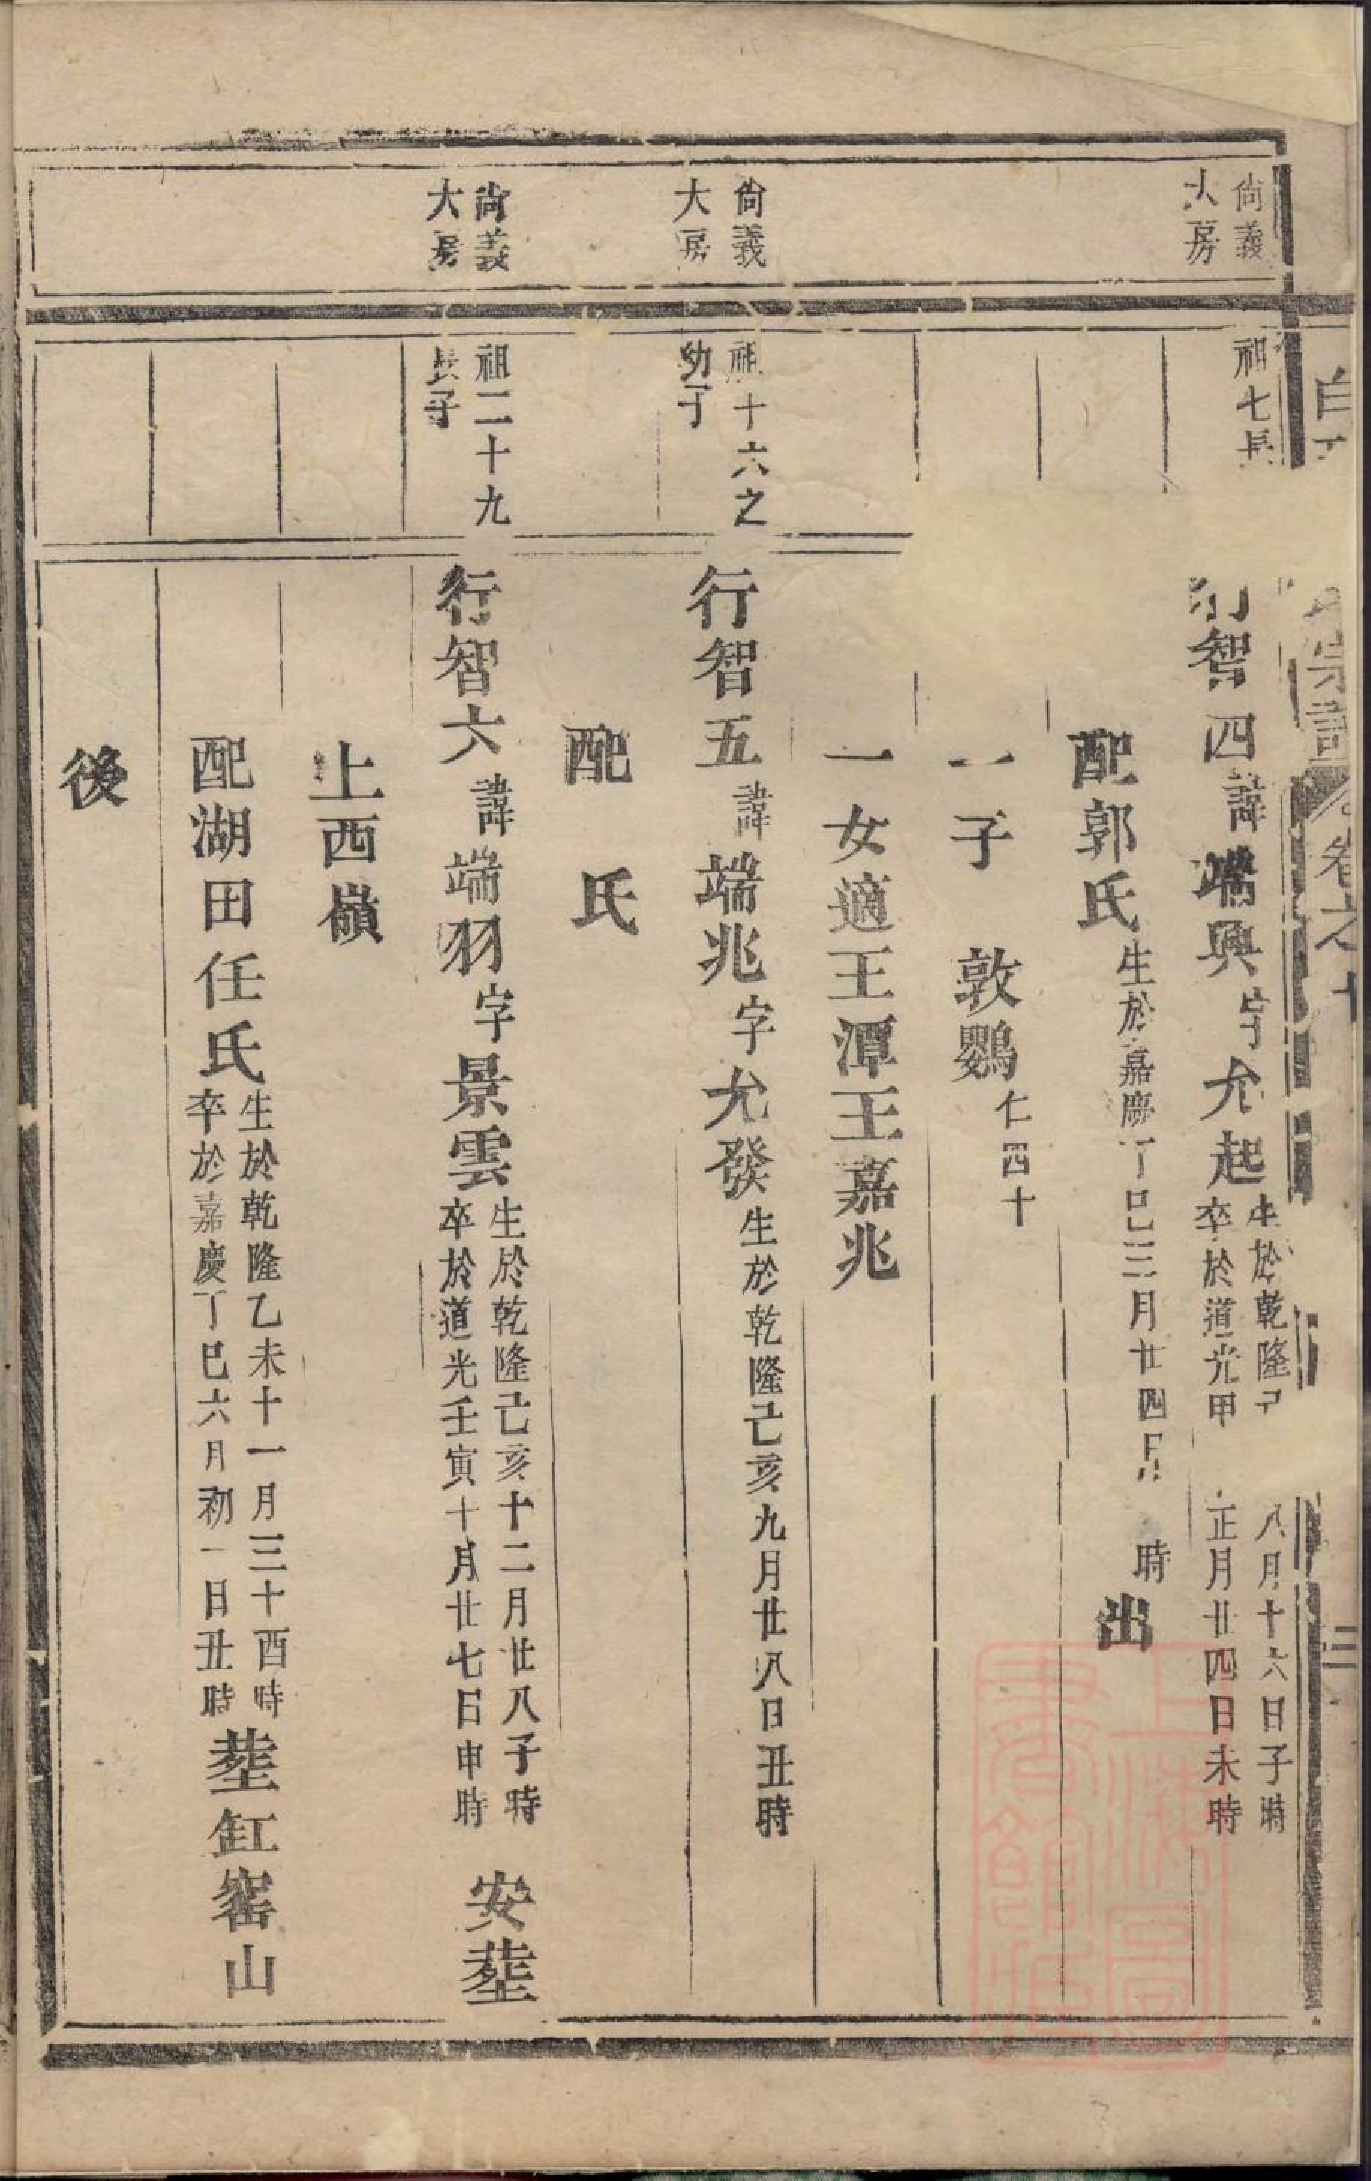 尙義
大房
祖七長
行智四諱端興字允起
生於乾隆己 八月十六日子時
卒於道光甲 正月廿四日未時
配郭氏生於嘉慶丁巳三月廿四 時出
一子 敦鸚仁四十
一女適王潭王嘉兆
尙義
大房
祖十六之
幼子
行智五諱端兆字允發生於乾隆己亥九月廿八日丑時
配 氏
尙義
大房
祖二十九
長子
行智六諱端羽字景雲
生於乾隆己亥十二月廿八子時
卒於道光壬寅十月廿七日申時
安塟
上西嶺
配湖田任氏
生於乾隆乙未十一月三十酉時
卒於嘉慶丁巳六月初一日丑時
塟缸窰山
後
宗譜 卷之十
上海圖書館藏